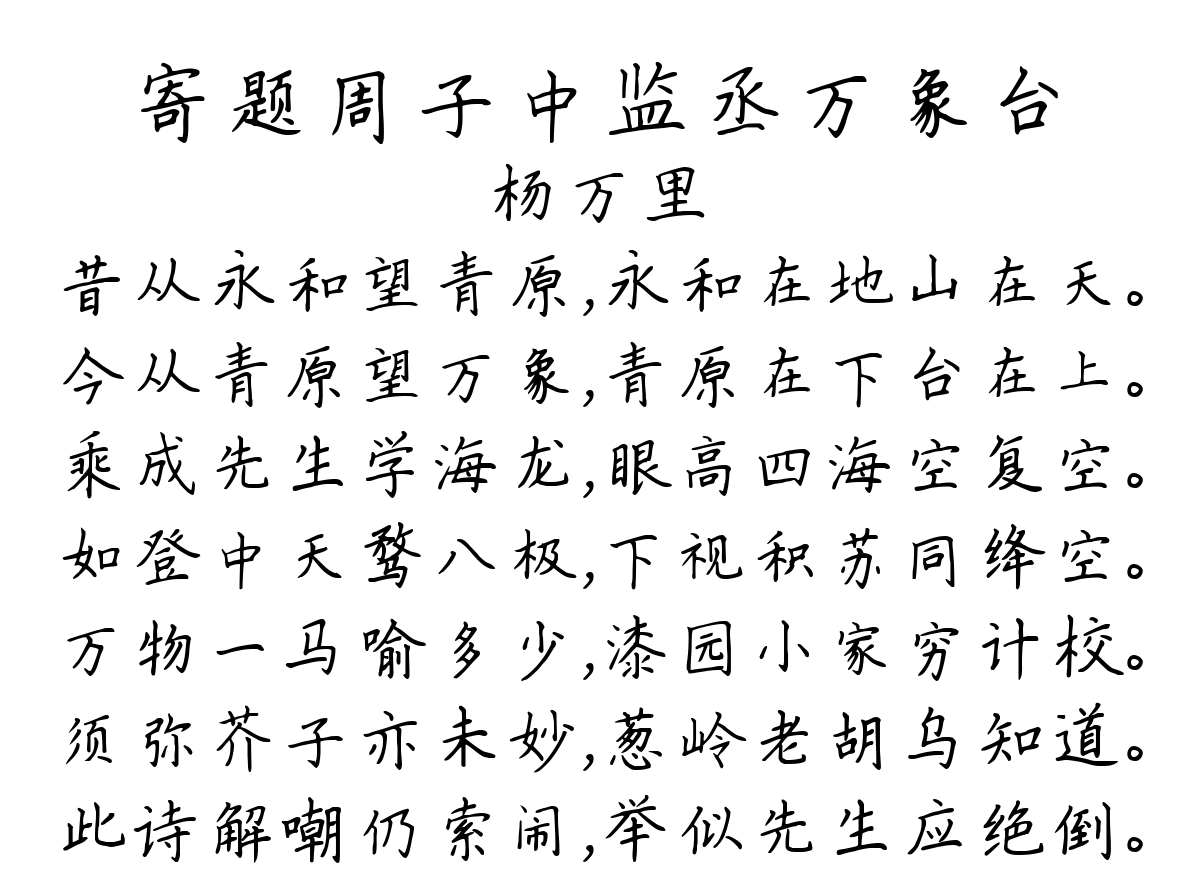 寄题周子中监丞万象台
杨万里
昔从永和望青原,永和在地山在天。
今从青原望万象,青原在下台在上。
乘成先生学海龙,眼高四海空复空。
如登中天鹜八极,下视积苏同绛空。
万物一马喻多少,漆园小家穷计校。
须弥芥子亦未妙,葱岭老胡乌知道。
此诗解嘲仍索闹,举似先生应绝倒。